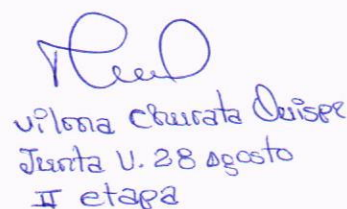 vilma Churata Quispe
Junta V. 28 Agosto
II etapa